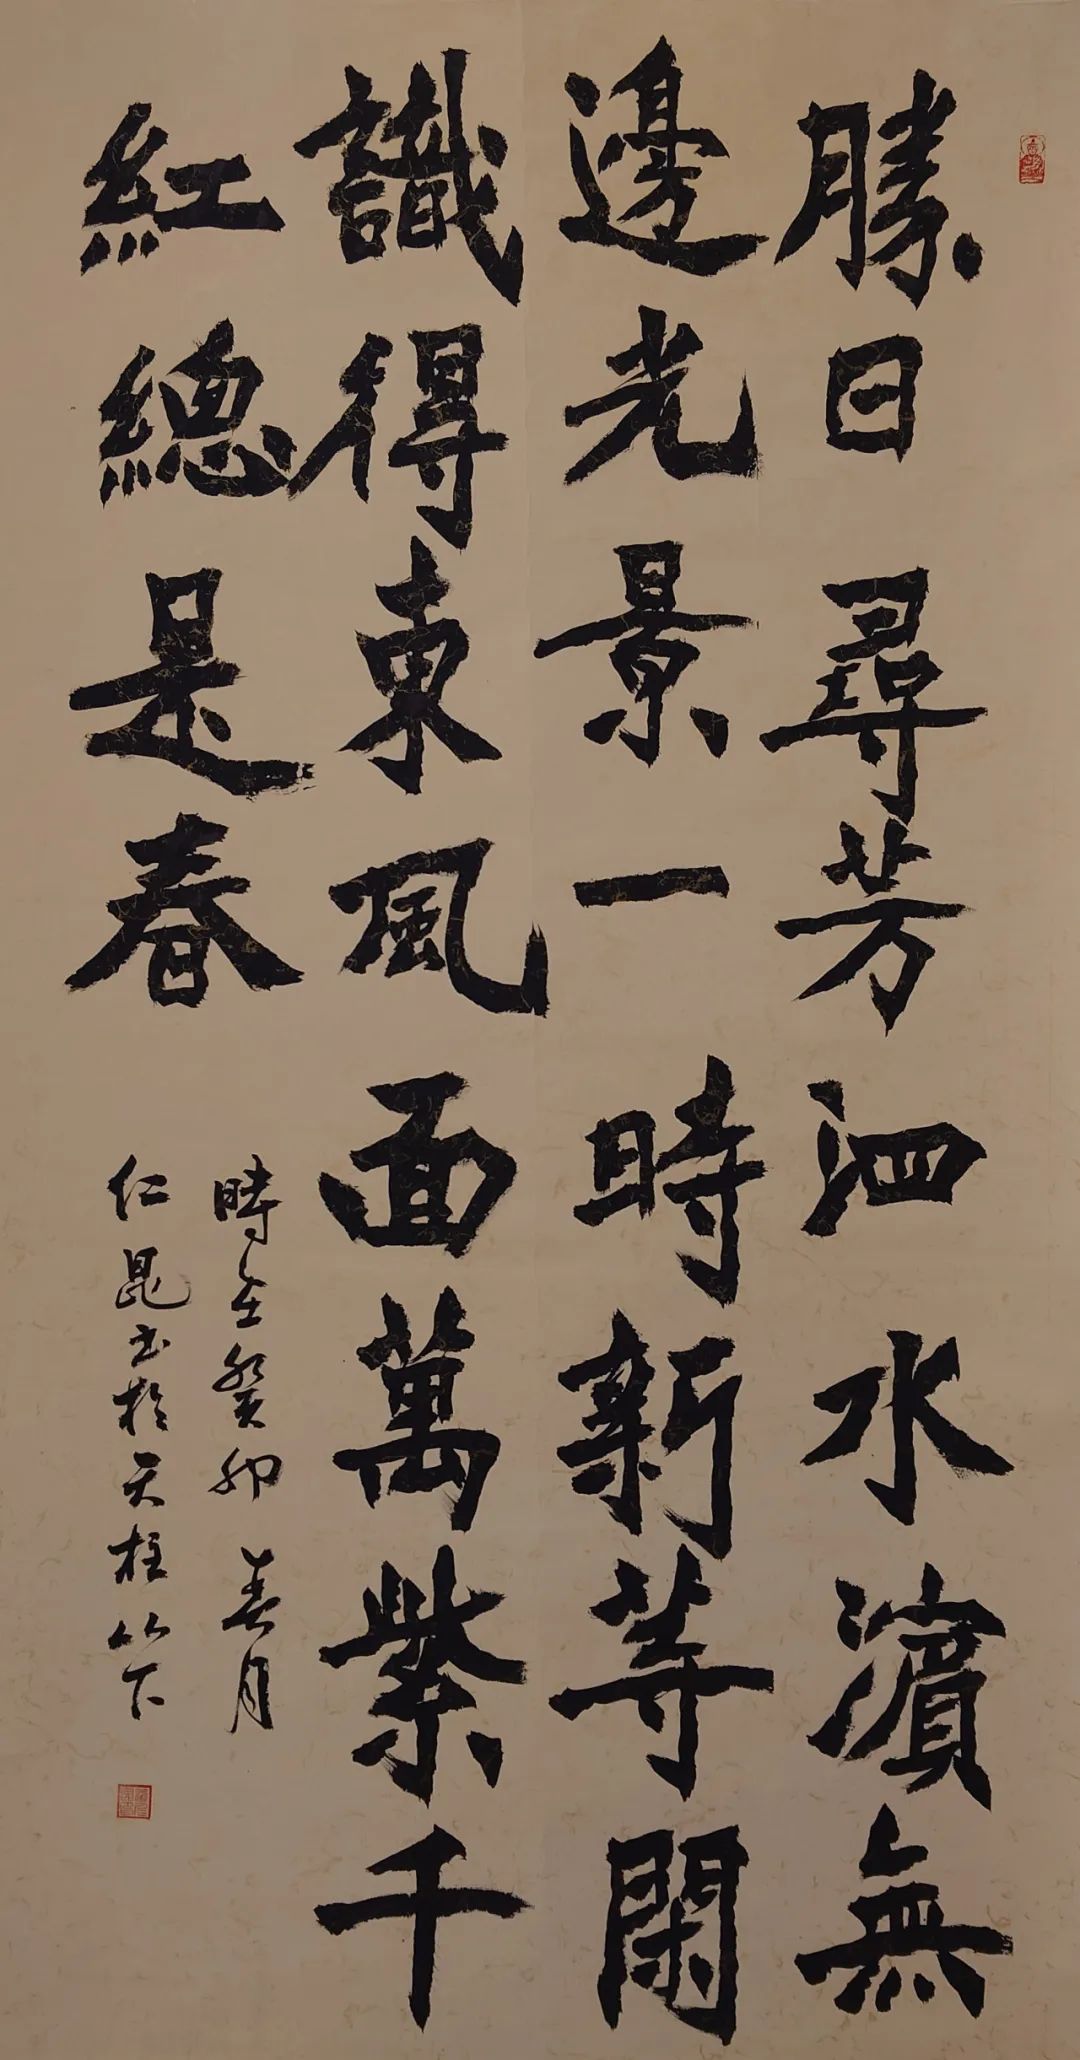 勝日尋芳泗水濱無
邊光景一時新等閑
識得東風面萬紫千
紅總是春
時在癸卯春月
仁昆书於天柱山下